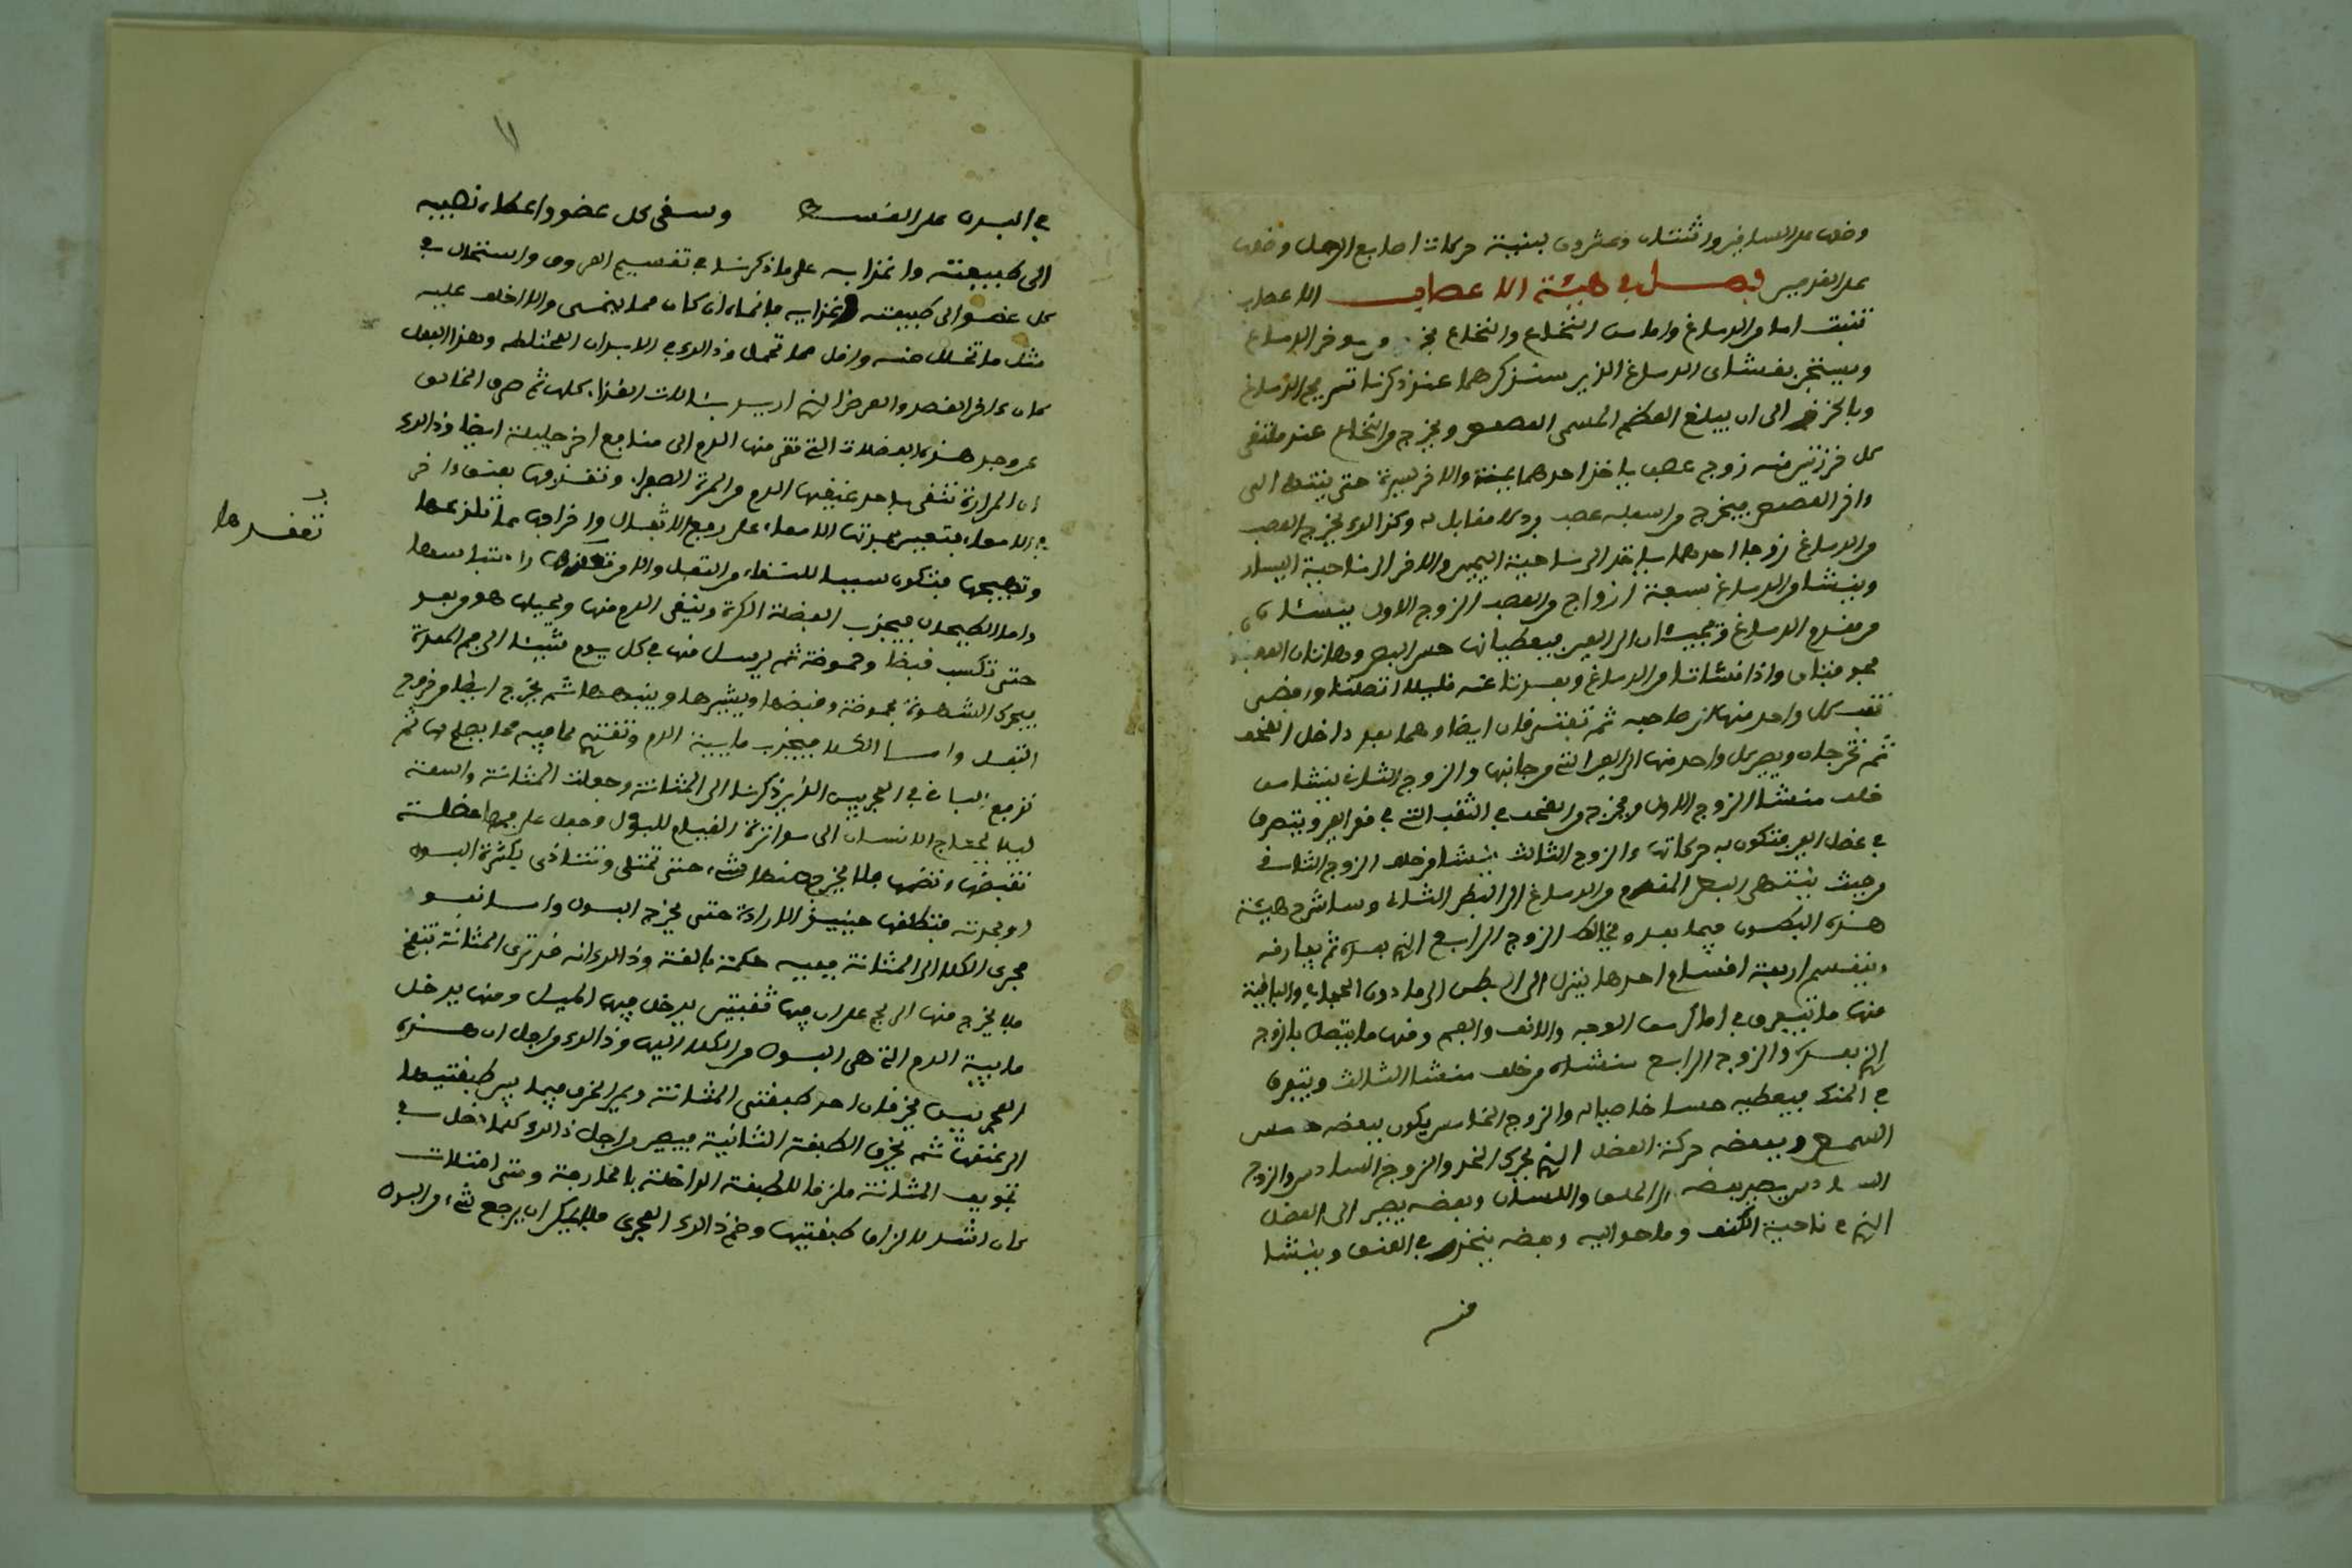 وضعت على الساقين واثنتان وعشرون لبنية حركات اصابع الرجل وضعت
على القدمين فصل في هيئة الاعصاب الاعصاب
تنبت اما من الدماغ واما من النخاع والنخاع من موخر الدماغ
ويستجن بغشاى الدماغ الذين سنذكرهما عند ذكرنا تشريح الدماغ
الى ان يبلغ العظم المسمى العصعص ويخرج من النخاع عند ملتقى
كل خرزتين منه زوج عصب ياخذ احدهما يمنة والاخر يسرة حتى ينتهى الى
واخر العصعص فيخرج من اسفله عصب فرد لا مقابل له وكذالك يخرج العصب
من الدماغ زوجا احدهما ياخذ الى ناحية اليمين والاخر الى ناحية اليسار
وينشا من الدماغ سبعة ازواج من العصب الزوج الاول ينشئان
من مقدم الدماغ ويجيئان الى العين فيعطيانها حس البصر وهاتان العصبتان
مجوفتان واذا نشاتا من الدماغ وبعدتا عنه قليلا اتصلتا وافضى
ثقب كل واحد منها الى صاحبه ثم تفترقان ايضا وهما بعد داخل القحف
ثم تخرجان ويصير كل واحد منها الى العين التى من جانبها والزوج الثانى ينشا من
خلف منشا الزوج الاول ويخرج من القحف في الثقب التى في قعر العين ويتفرق
في عضل العين فتكون به حركاتها والزوج الثالث ينشا من خلف الزوج الثانى
من حيث ينتهى البطن المقدم من الدماغ الى البطن الثانى وساشرح هيئة
هذه البطون فيما بعد ويخالط الزوج الرابع الذى بعده ثم يفارقه
وينقسم اربعة اقسام احدها ينزل الى البطن الى ما دون الحجاب والباقية
منها ما يتفرق في اماكن من الوجه والانف والفم ومنها ما يتصل بالزوج
الذى بعده والزوج الرابع منشاه من خلف منشا الثالث ويتفرق
في الحنك فيعطيه حسا خاصيا له والزوج الخامس يكون ببعضه حس
السمع وببعضه حركة العضل الذى يحرك الخد والزوج السادس والزوج
السادس يصير بعضه الى الحلق واللسان وبعضه يصير الى العضل
الذى في ناحية الكتف وما حواليه وبعضه ينحدر في العنق وينشا
منه
في البدن على القسط وسقى كل عضو واعطاه نصيبه
الى طبيعته واغتذا به على ما ذكرنا في تقسيم العروق واستحال في
كل عضو الى طبيعته واغتذا به فانماه ان كان مما ينمى والا اخلف عليه
مثل ما تحلل منه واقل مما تحلل وذالك في الابدان المختلطه وهذا الفعل
كان على اخر القصد والغرض الذى اريد بتالات الغذاء كلها ثم صرف الخالق
عز وجل هذه الفضلات التى نقى منها الدم الى منافع اخر جليلة ايضا وذالك
ان المرارة تنقى باحد عنقيها الدم من المرة الصفراء وتقذفها بعنقها الاخر
في الامعاء فتعين بحدتها الامعاء على دفع الاثفال واخراجها مما تلذعها
وتهيجها فتكون سببا للنقاء من الثفل والامر اذا انتبا سعها
تفقدها
واما الطحال فيجذب الفضلة العكرة وينقى الدم منها ويحيلها هو من بعد
حتى تكسب قبضا وحموضة ثم يرسل منها في كل يوم شيئا الى فم المعدة
فيحرك الشهوة بحموضة وقبضها ويثيرها وينبهها ثم يخرج ايضا من خروج
الثفل واما الكلا فيجذب مائية الدم وتغتذى بما فيه مما يصلح لها ثم
تدفع الباقى في المجريين الذين ذكرنا الى المثانة وجعلت المثانة واسعة
ليلا يحتاج الانسان الى تواتر القيام للبول وجعل على فمها عضلة
تقبضها وتضمها فلا يخرج منها شىء حتى تمتلى وتتاذى بكثرة البول
او بحدته فتطلقها حينئذ الارادة حتى يخرج البول واما نفوذ
مجرى الكلا الى المثانة ففيه حكمة بالغة وذالك انه قد ترى المثانة تنفخ
فلا يخرج منها الريح على ان فيها ثقبتين يدخل فيها الميل ومنها يدخل
مايية الدم التى هى البول من الكلا اليها وذالك من اجل ان هذه
المجريين يخرقان احد طبقتى المثانة ويمر الخرق فيما بين طبقتيها
الى عنقها ثم يخرق الطبقة الثانية فيصير من اجل ذالك كلما دخل في
تجويف المثانة ملزقا للطبقة الداخلة بالخارجة ومتى امتلات
كان اشد لالزاق طبقتيها وضم ذالك المجرى فلا يمكن ان يرجع شىء من البول